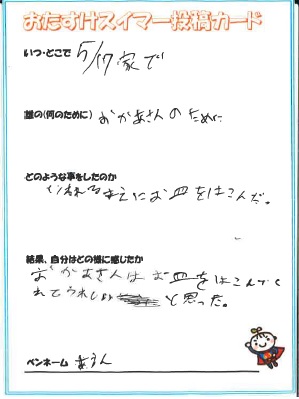 おたすけスイマー投稿カード
いつ・どこで 5/17 家で
誰の(何のために) おかあさんのために
どのような事をしたのか
まえにお皿をはこんだ。
結果、自分はどの様に感じたか
おかあさんはお皿をはこんでく
れてうれしい と思った。
ペンネーム